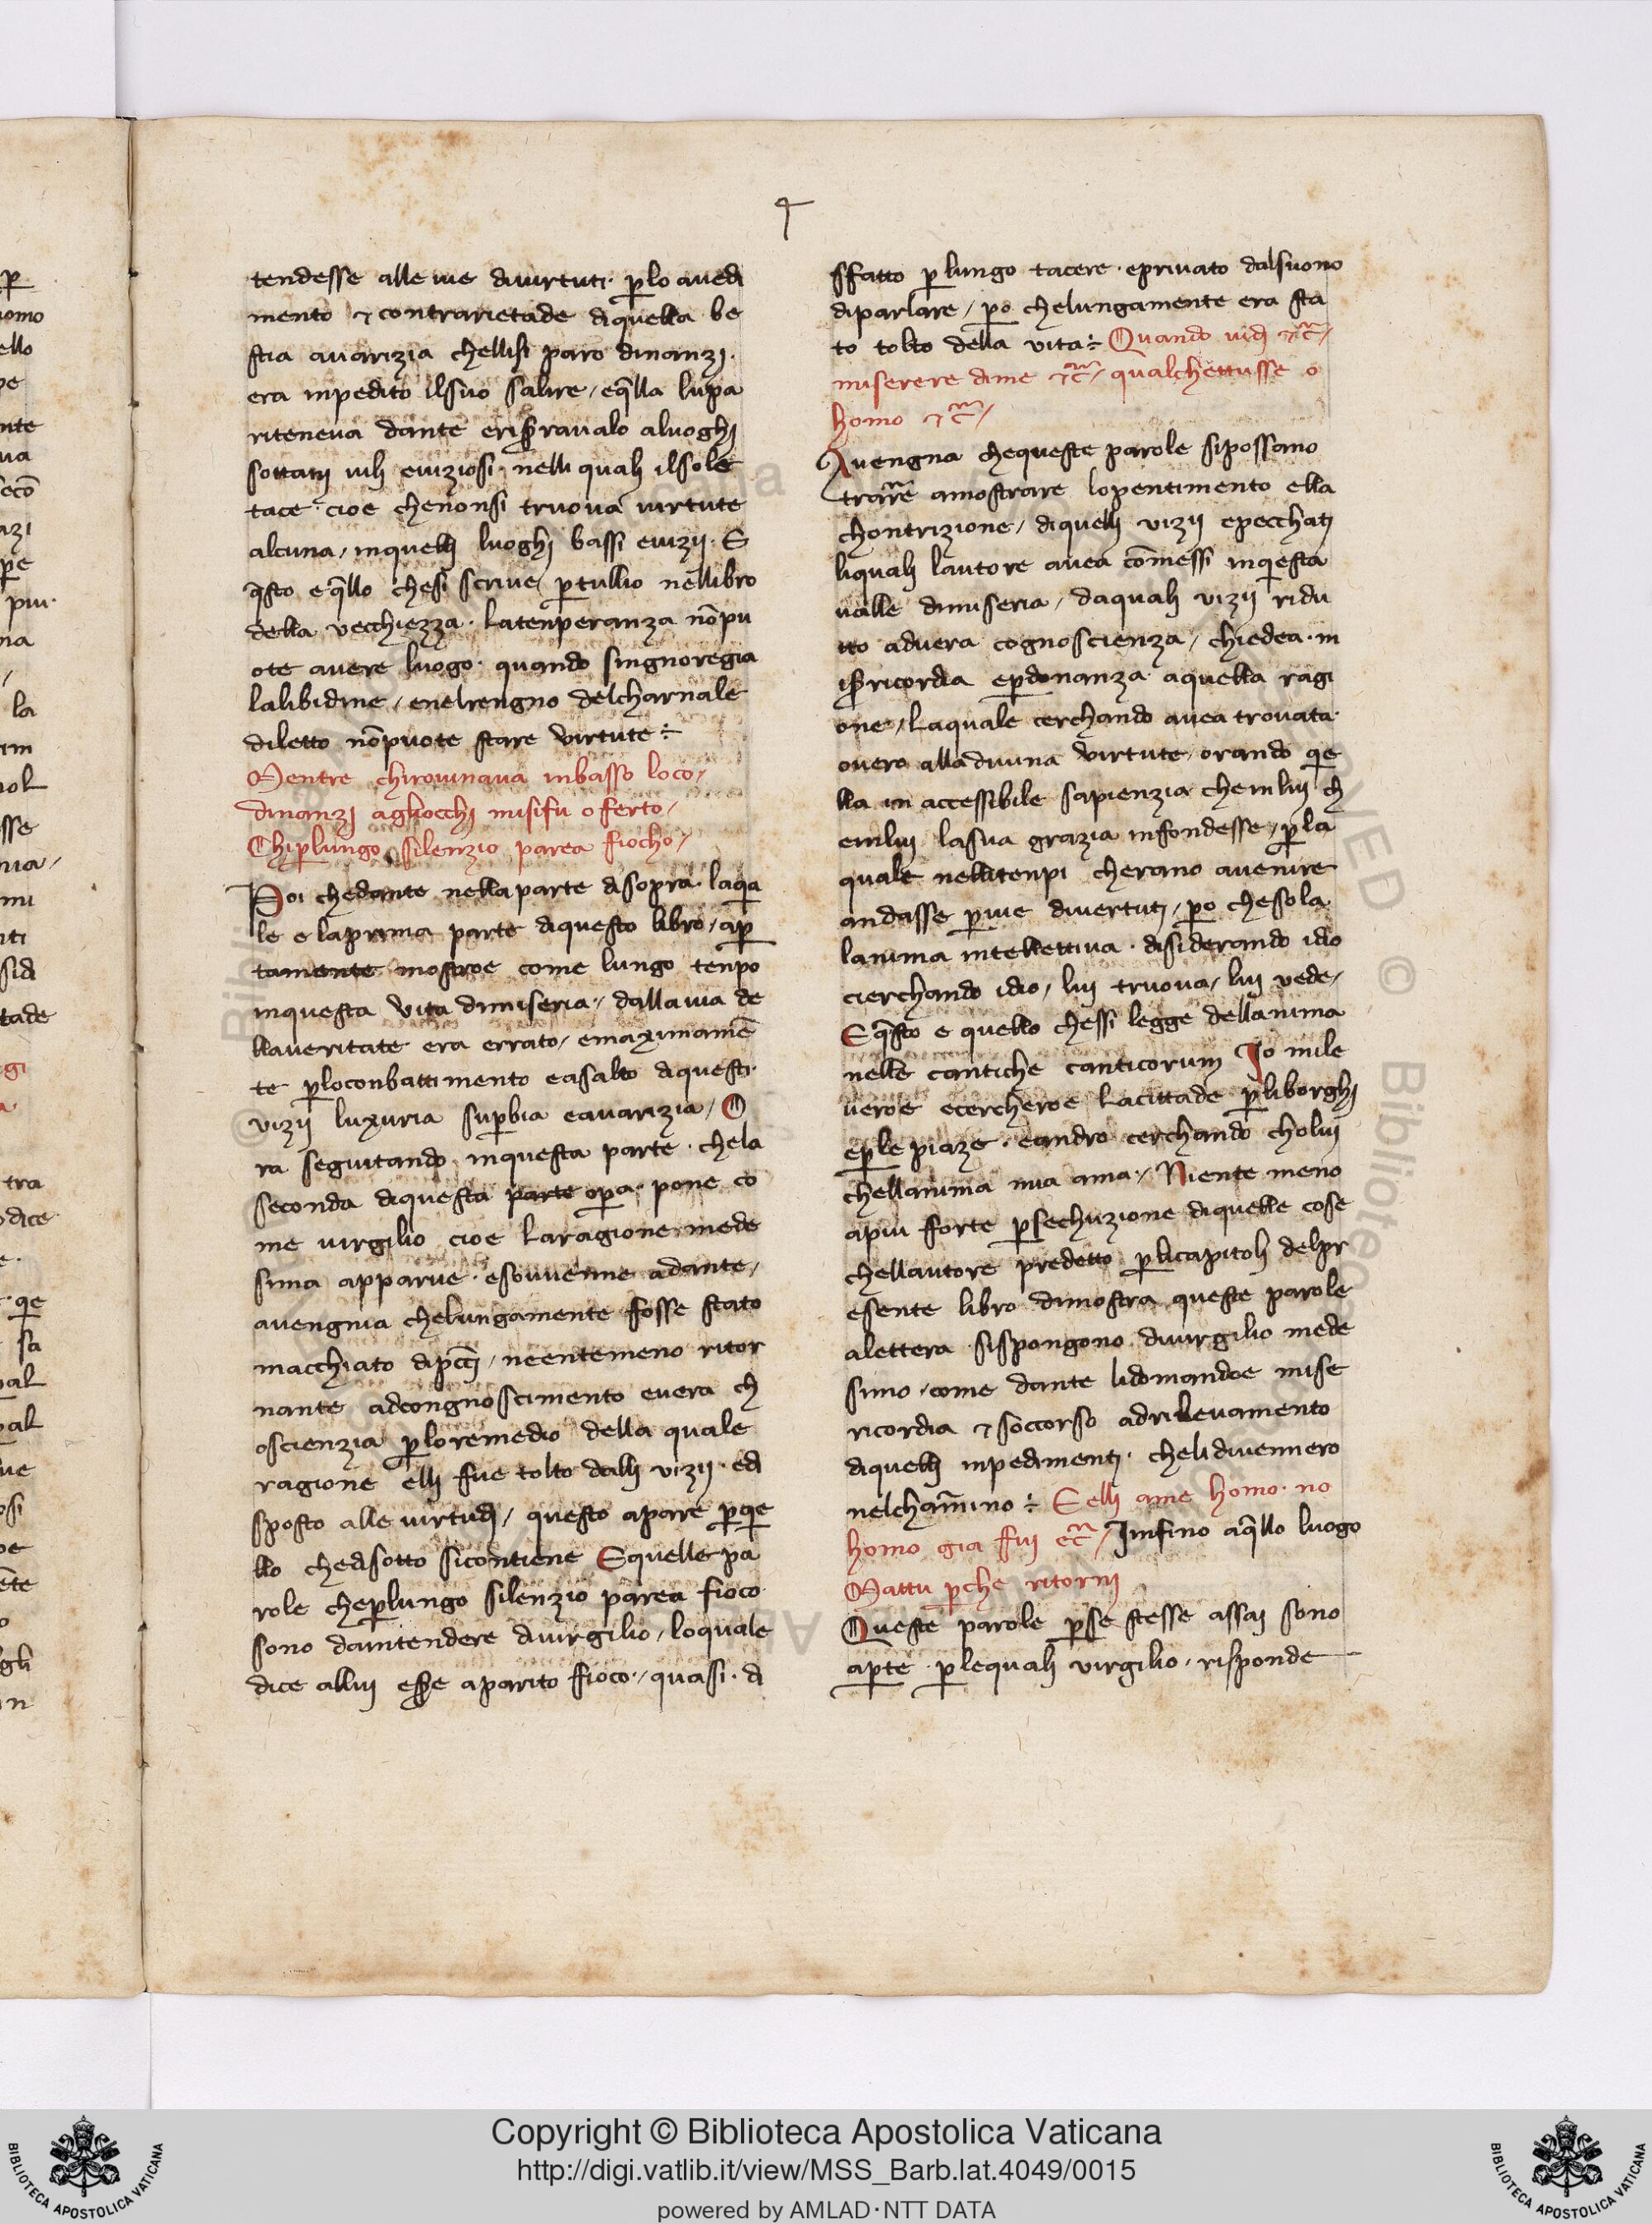 4
tendesse alle uie diuirtuti · ꝑlo auedi
mento ⁊ contrarietade diquella be
stia auarizia chellisi paro dinanzi ·
era inpedito ilsuo salire / eq̄lla lupa
riteneua dante eripͥgnaualo aluoghi
sottani uili euiziosi · nelli quali ilsole
tace · cioe chenonsi truoua uirtute
alcuna / inquelli luoghi bassi euizij · E
q̄sto eq̄llo chesi scriue ꝑtullio nellibro
della vecchiezza · latenperanza nōpu
ote auere luogo · quando singnoregia
lalibidine / enelrengno delcharnale
diletto nōpuote stare virtute ÷
Mentre chirouinaua inbasso loco /
dinanzi agliocchi misifu oferto /
Chiꝑlungo silenzio parea fiocho /
Poi chedante nellaparte disopra · laqa
le e laprima parte diquesto libro / aꝑ
tamente mostroe come lungo tenpo
inquesta vita dimiseria / dallauia de
llaueritate era errato / emaximamē
te ꝑloconbattimento easalto diquesti ·
vizij luxuria suꝑbia eauarizia / O
ra seguitando inquesta parte · chela
seconda diquesta parte oꝑa · pone co
me uirgilio cioe laragione mede
sima apparue · esouuenne adante /
auengnia chelungamente fosse stato
macchiato dipcc̄i / neentemeno ritor
nante adcongnoscimento euera ch
oscienzia ꝑloremedio della quale
ragione elli fue tolto dalli vizij · edi
sposto alle uirtudi / questo apare ꝑqe
llo chedisotto sicontiene Equelle pa
role cheꝑlungo silenzio parea fioco
sono daintendere diuirgilio / loquale
dice allui essere aparito fioco · / quasi · di
sfatto ꝑ lungo tacere · epriuato dalsuono
diparlare / ꝑo chelungamente era sta
to tolto della vita ÷ Quando uidi ⁊c̄ /
miserere dime ⁊c̄ / qualchettusse o
homo ⁊c̄ /
Auengna chequeste parole sipossano
trarre amostrare lopentimento ella
chontrizione / diquelli vizij epecchati
liquali lautore auea cōmessi inqesta
ualle dimiseria / daquali vizij ridu
tto aduera cognoscienza / chiedea · m
isericordia eꝑdonanza aquella ragi
one / Laquale cerchando auea trouata ·
ouero alladiuina virtute / orando qe
lla in accessibile sapienzia chenlui ch
enlui lasua grazia infondesse / ꝑla
quale nellitenpi cherano auenire
andasse ꝑuie diuertuti / ꝑo chessola
lanima intellettiua · disiderando idio
cierchando idio / lui truoua / lui vede /
Eq̄sto e quello chessi legge dellanima
nelle cantiche canticorum Io mile
ueroe ecercheroe lacittade ꝑliborghi
eꝑle piaze · eandro cerchando cholui
chellanima mia ama / Niente meno
apiu forte ꝑsechuzione diquelle cose
chellautore predetto ꝑlicapitoli delpr
esente libro dimostra queste parole
alettera sispongono diuirgilio mede
simo / come dante lidomandoe mise
ricordia ⁊ soccorso adrileuamento
diquelli inpedimenti · chelidiuennero
nelchamīno ÷ Eelli ame homo · no
homo gia fui ec̄ / Imfino aq̄llo luogo
Mattu ꝑche ritorni
Queste parole ꝑse stesse assai sono
aꝑte · ꝑlequali virgilio · risponde
Copyright © Biblioteca Apostolica Vaticana
http://digi.vatlib.it/view/MSS_Barb.lat.4049/0015
powered by AMLAD·NTT DATA
BIBLIOTECA APOSTOLICA VATICANA
BIBLIOTECA APOSTOLICA VATICANA